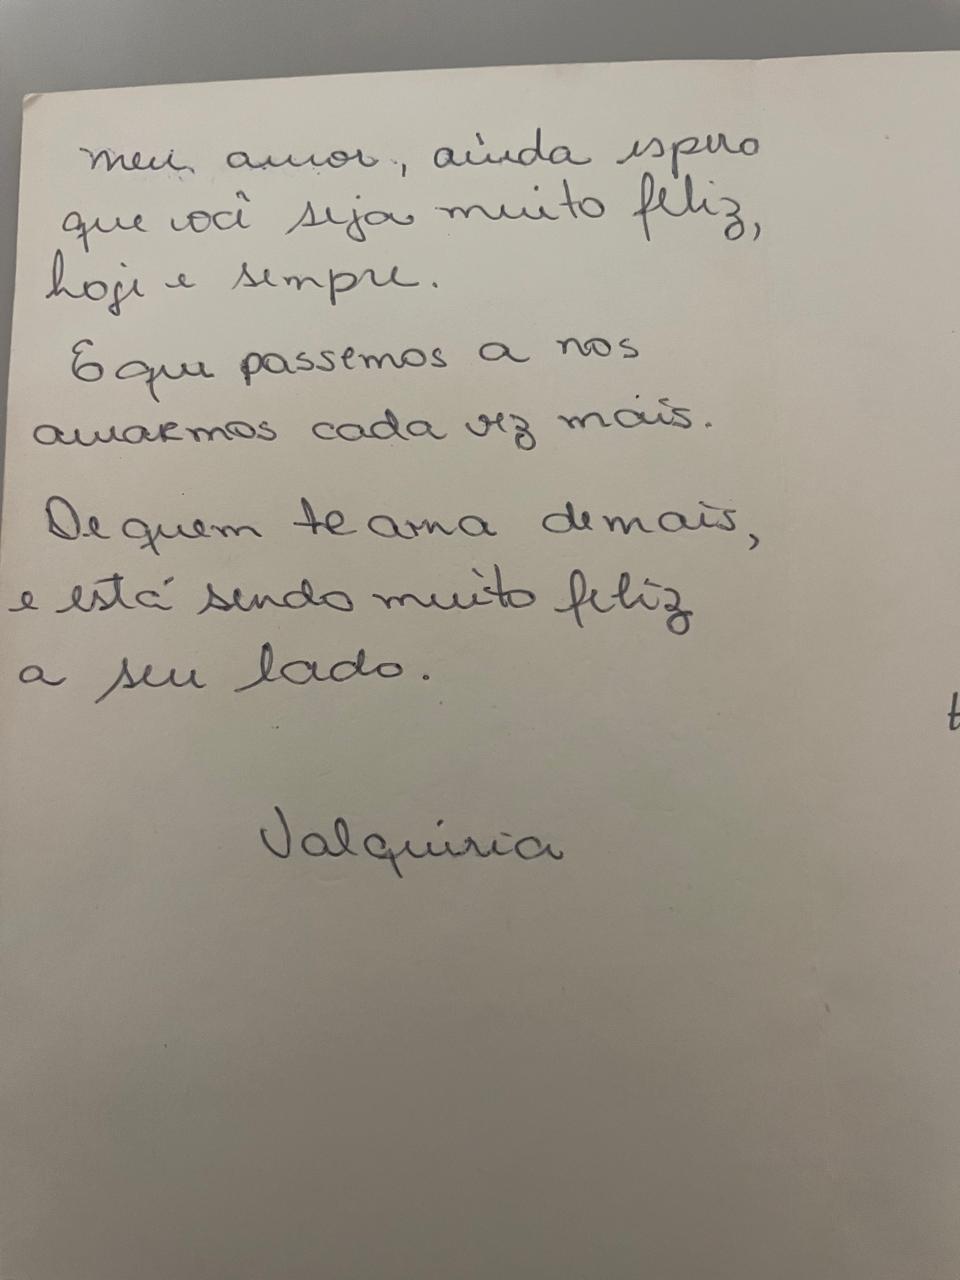 meu amor, ainda espero
que você seja muito feliz,
hoje e sempre.
E que passemos a nos
amarmos cada vez mais.
De quem te ama demais,
e está sendo muito feliz
a seu lado.
Valquiria